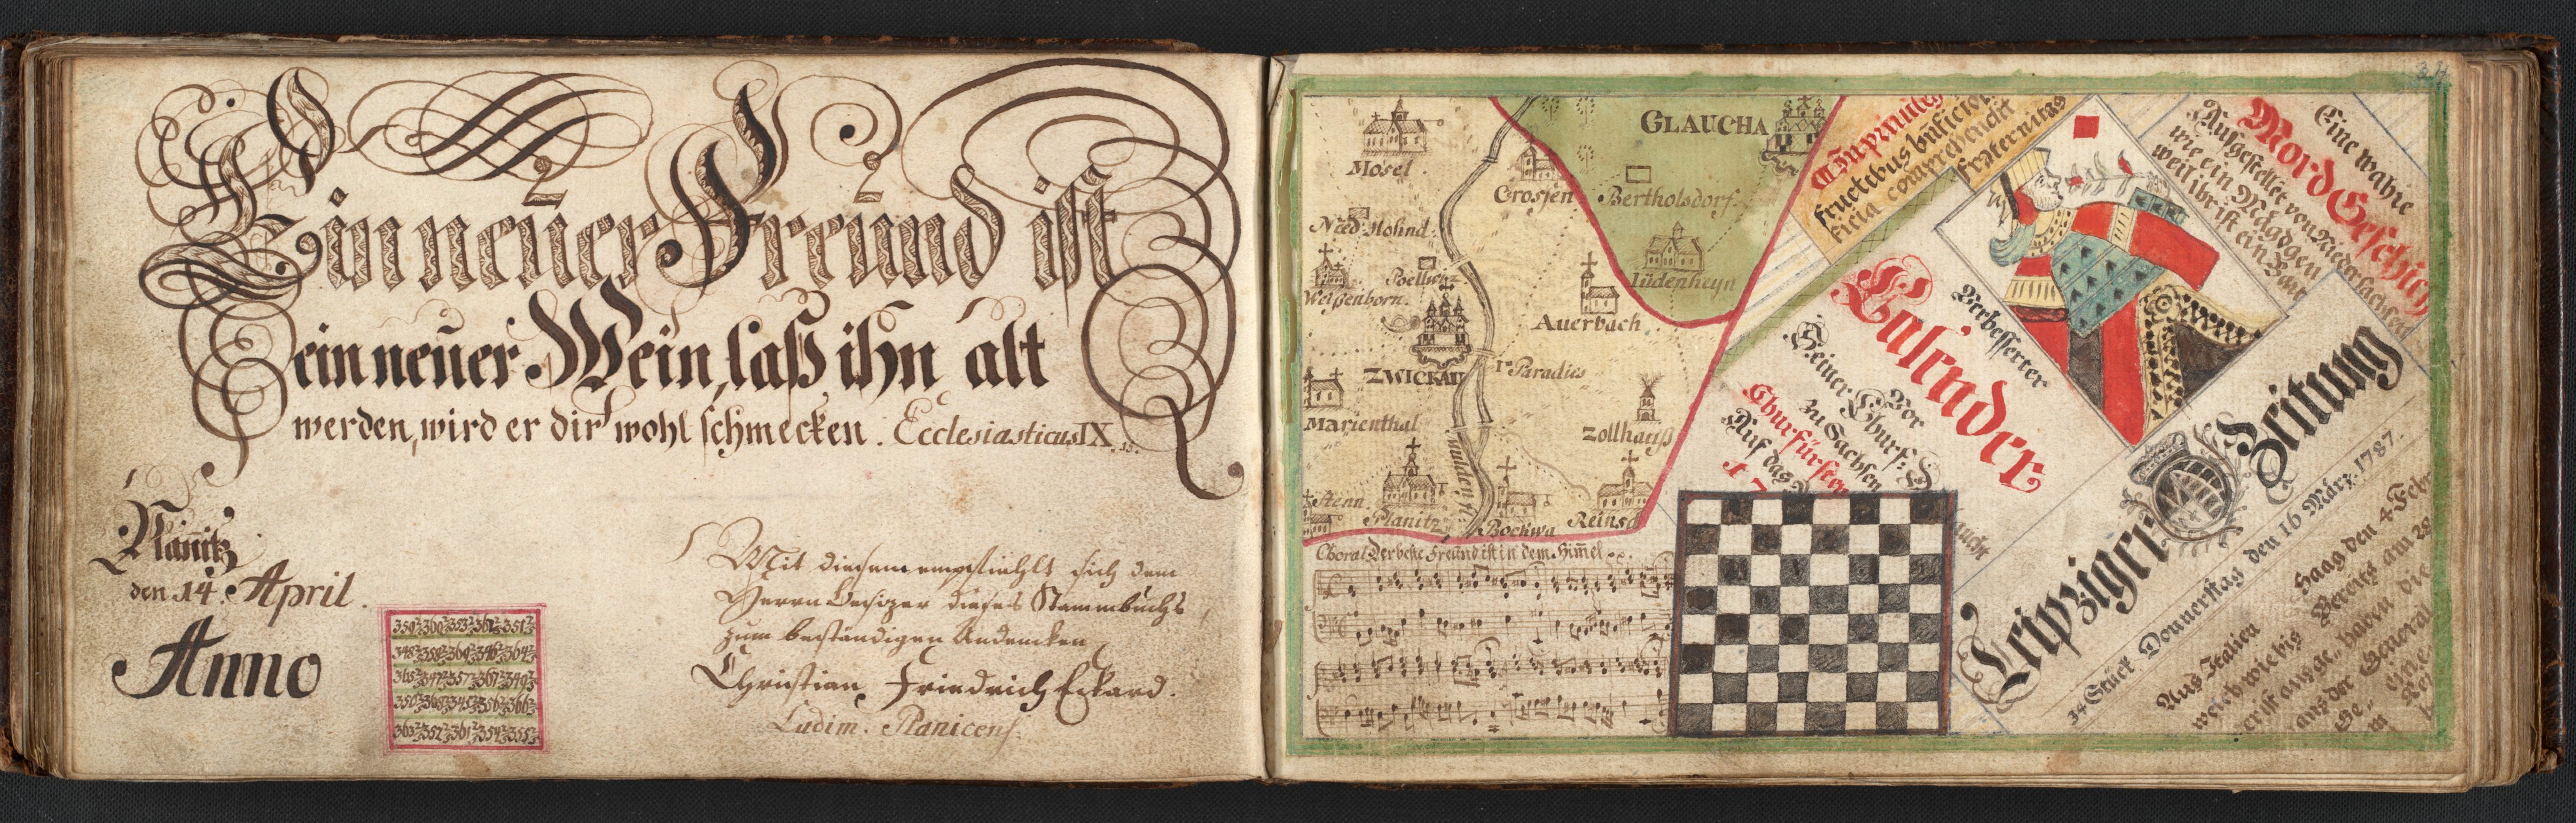 Ein neuer Freund ist
ein neuer Wein, laß ihn alt
werden, wird er dir wohl schmecken. Ecclesiasticus IX. 15.
Planitz
den 14. April.
Anno
Mit diesem empfiehlt sich dem
Herrn Besizer dieses Stammbuchs
zum beständigen Andencken
Christian Friedrich Eckard.
Ludim. Planicens.
GLAUCHA
Mosel
Crosjen
Bertholsdorf
Nied Hohnd.
Weißenborn
Poellwiz
Lüdenheyn
Auerbach
ZWICKAU
r Paradies
Marienthal
Zollhauß
Mulden fl.
Stenn
Planitz
Bockwa
Reinsd
Choral Der beste Freund ist in dem Himel
fructibus
ficia comprehendit
fraternitas
Eine wahre
Mord Geschich
Ausgestellet von Niedersachsen
wie ein Mägdgen
weil ihr ist ein
Verbesserter
Calender
Vor
Seiner Churf: D
zu Sachsen
Churfürsten
Auf das
17
ucht
Leipziger Zeitung
34 Stück Donnerstag den 16 März. 1787.
Aus Italien
Haag den 4 Febr
welch wie bis
Bereits am 28
haben die
aus der General
Eine